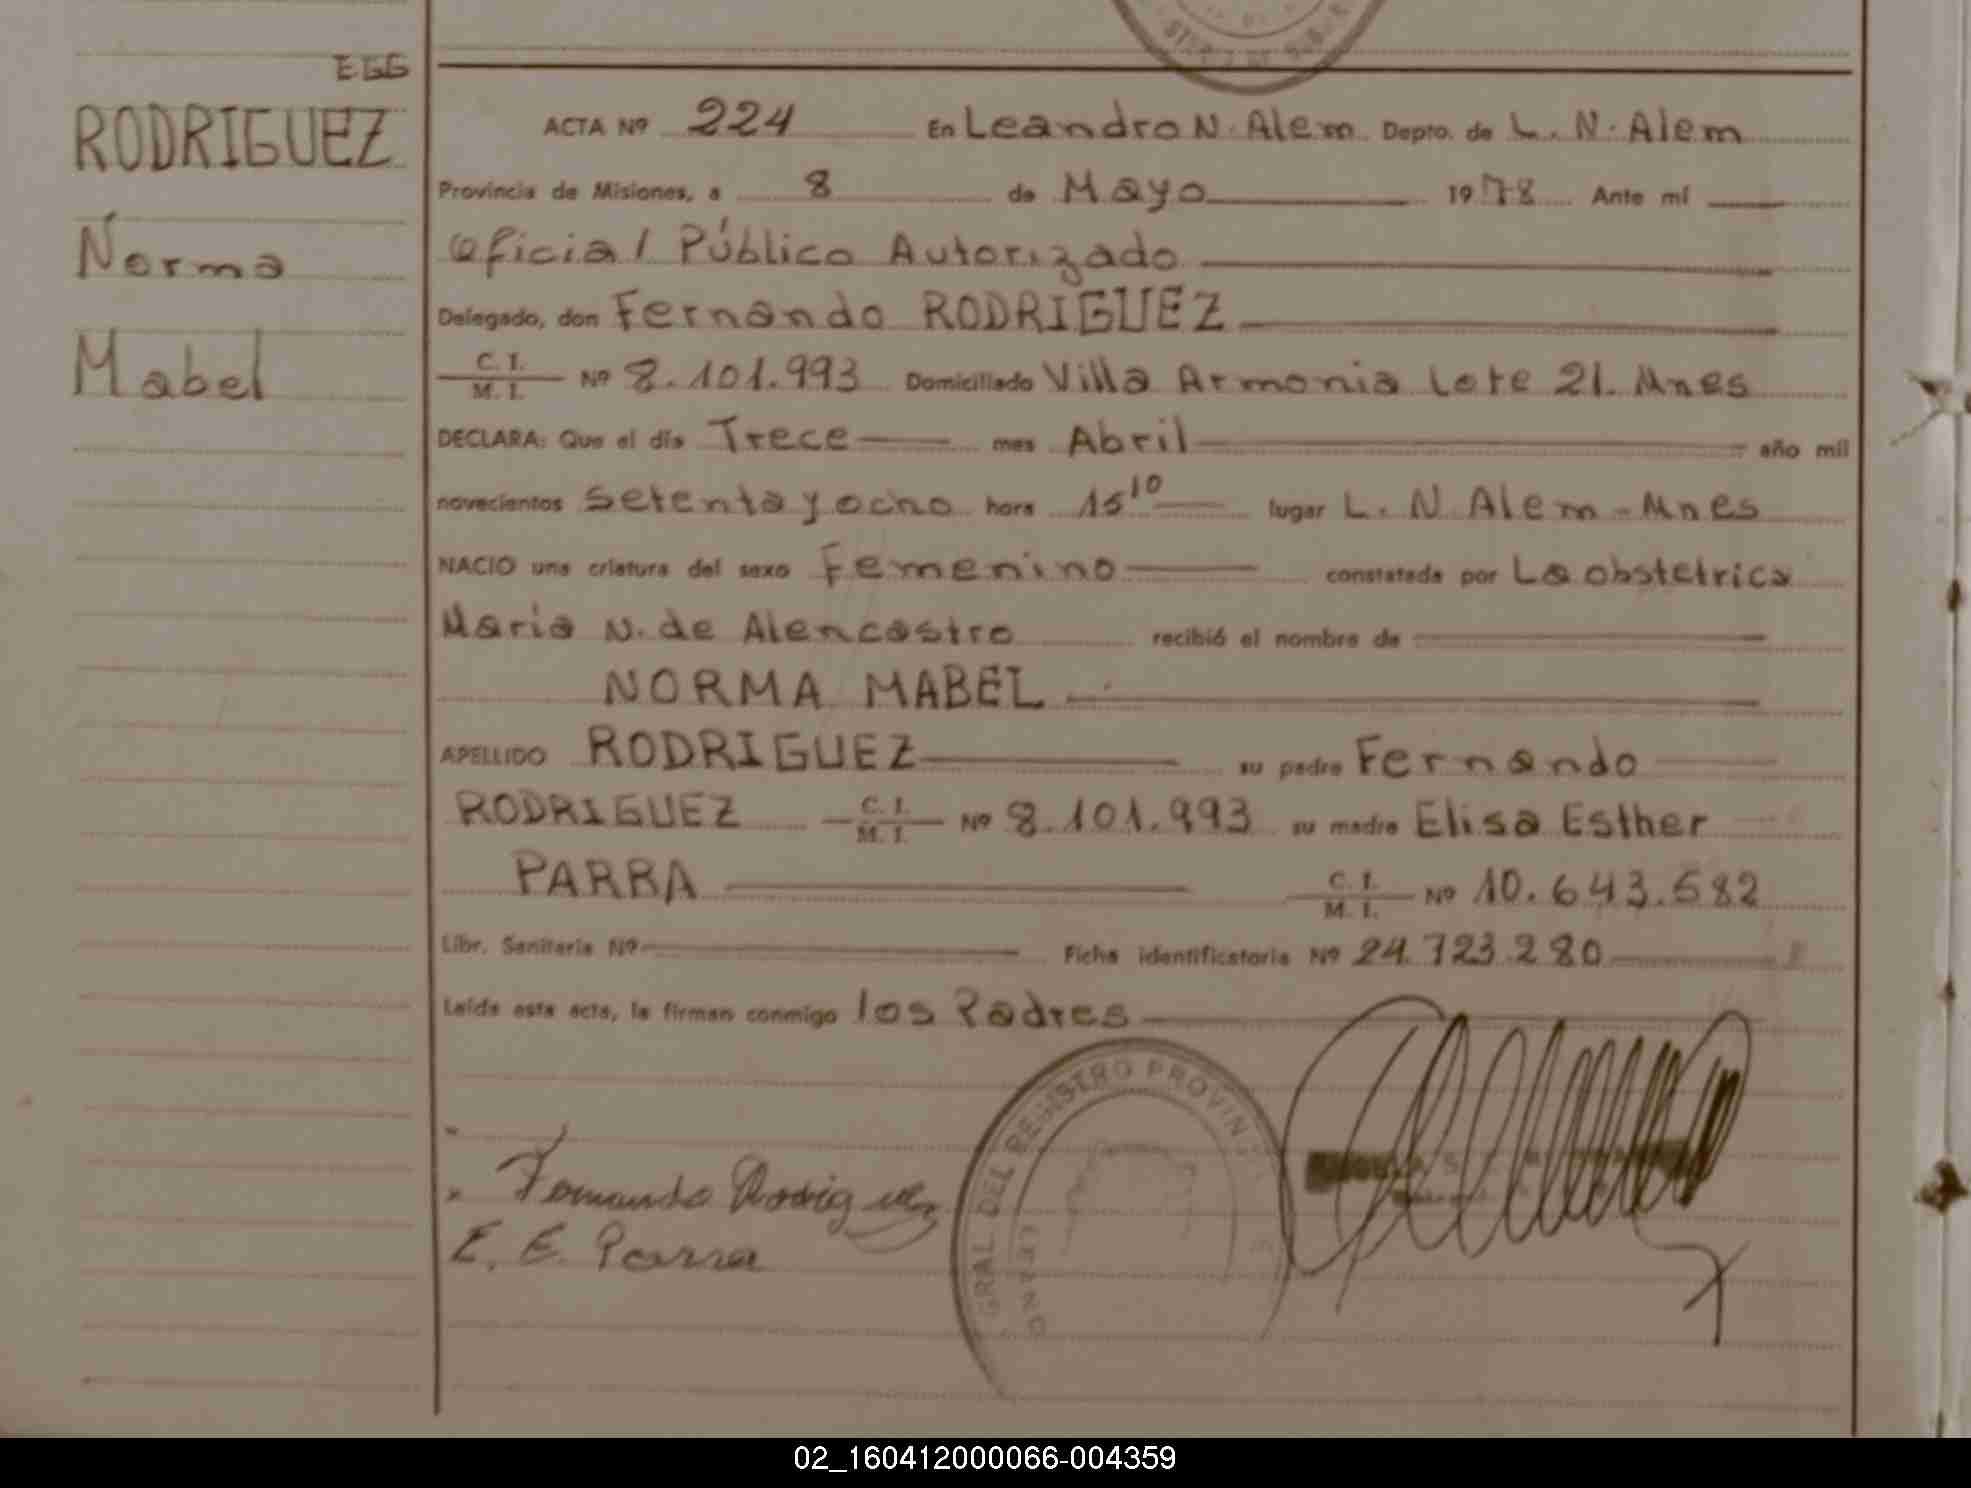 EGG
RODRIGUEZ
Norma
Mabel
ACTA Nº 224 En Leandro N. Alem Depto. de L. N. Alem
Provincia de Misiones, a 8 de Mayo 1978 Ante mí
Oficial Público Autorizado
Delegado, don Fernando RODRIGUEZ
C. I. / M. I. Nº 8.101.993 Domiciliado Villa Armonia Lote 21. Mnes
DECLARA: Que el día Trece mes Abril año mil
novecientos setenta y ocho hora 15 10 lugar L. N Alem - Mnes
NACIO una criatura del sexo Femenino constatada por La obstetrica
Maria N. de Alencastro recibió el nombre de
NORMA MABEL
APELLIDO RODRIGUEZ su padre Fernando
RODRIGUEZ C. I. / M. I. Nº 8.101.993 su madre Elisa Esther
PARRA C. I. / M. I. Nº 10.643.582
Libr. Sanitaria Nº Ficha identificatoria Nº 24.723.280
Leída esta acta, la firman conmigo los Padres
GRAL DEL REGISTRO PROVIN
Fernando Rodriguez
E. E. Parra
02_160412000066-004359